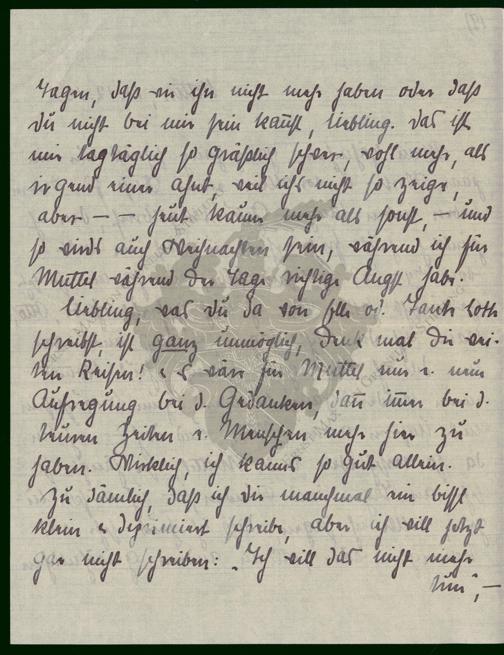 Tagen, daß wir ihn nicht mehr haben oder daß
du nicht bei mir sein kannst, Liebling. Das ist
mir tagtäglich so gräßlich schwer, wohl mehr, als
irgend einer ahnt, weil ichs nicht so zeige,
aber – – heut kaum mehr als sonst, – und
so wirds auch Weihnachten sein, während ich für
Muttel während der Tage richtige Angst habe.
Liebling, was du da von Elle od. Tante Loth
schreibst, ist ganz unmöglich, denk mal die wei-
ten Reisen! es wäre für Muttel nur e. neue
Aufregung bei d. Gedanken, dan̄ im̄er bei d.
teuren Zeiten e. Menschen mehr hier zu
haben. Wirklich, ich kanns so gut allein.
Zu dämlich, daß ich dir manchmal ein bissl
klein & deprimiert schreibe, aber ich will jetzt
gar nicht schreiben: „Ich will das nicht mehr
tun", –